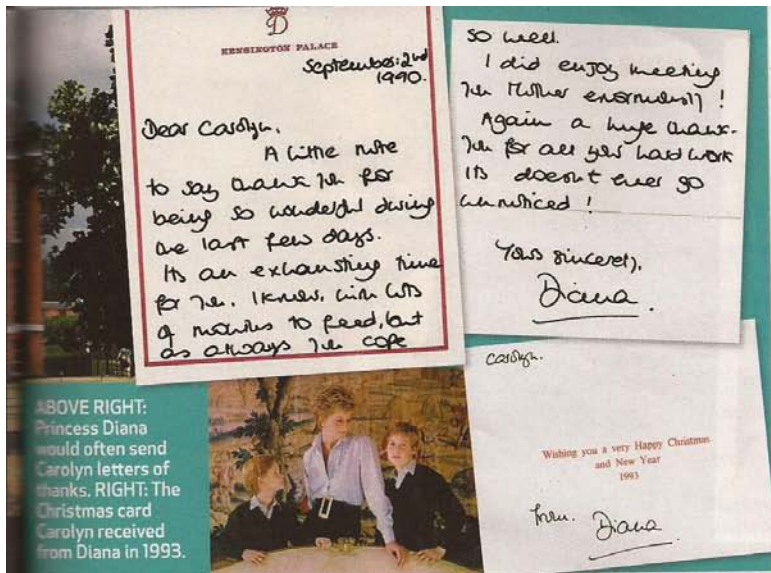 D
KENSINGTON PALACE
September: 2nd
1990.
Dear Carolyn.
A little note
to say thank you for
being so wonderful during
the last few days.
Its an exhausting time
for you. I know, with lots
of mouths to feed, but
as always you cope
so well.
I did enjoy meeting
your Mother enormously!
Again a huge thank-
you for all your hard work
its doesn't ever go
unnoticed!
Yours sincerely,
Diana.
ABOVE RIGHT:
Princess Diana
would often send
Carolyn letters of
thanks. RIGHT: The
Christmas card
Carolyn received
from Diana in 1993.
Carolyn.
Wishing you a very Happy Christmas
and New Year
1993
from. Diana.